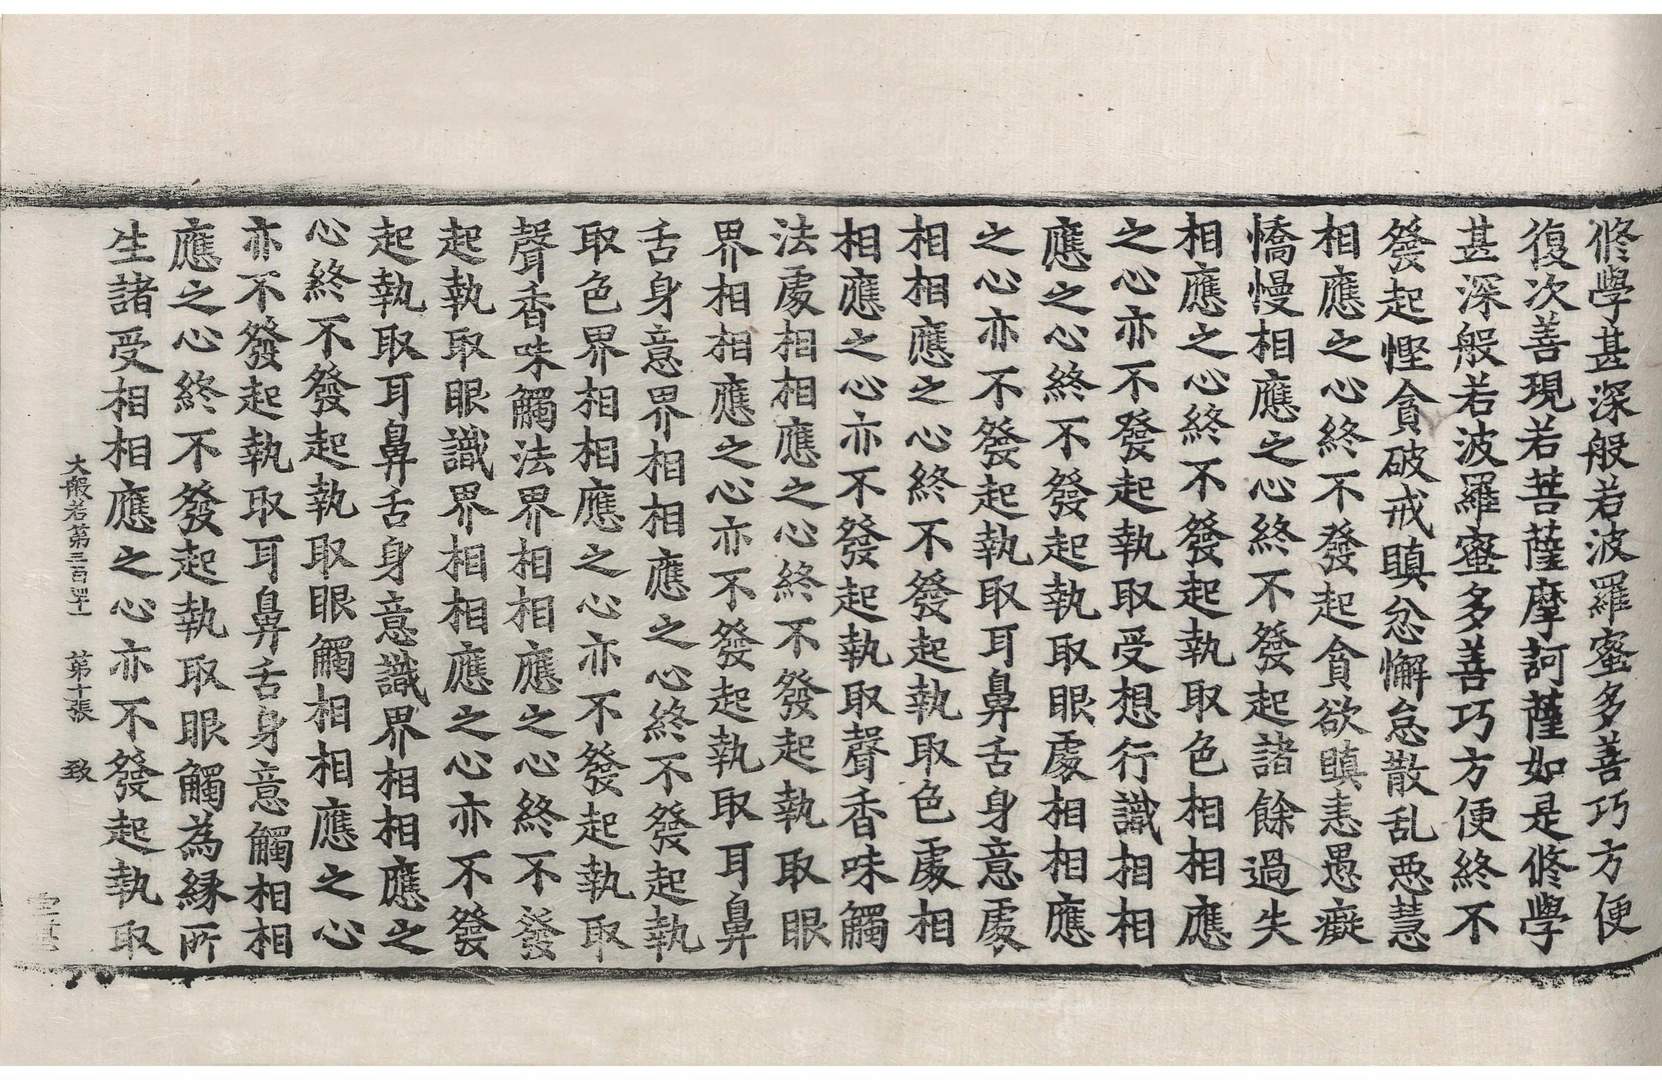 修學甚深般若波羅蜜多善巧方便
復次善現若菩薩摩訶薩如是修學
甚深般若波羅蜜多善巧方便終不
發起慳貪破戒瞋忿懈怠散乱惡慧
相應之心終不發起貪欲瞋恚愚癡
憍慢相應之心終不發起諸餘過失
相應之心終不發起執取色相相應
之心亦不發起執取受想行識相相
應之心終不發起執取眼處相相應
之心亦不發起執取耳鼻舌身意處
相相應之心終不發起執取色處相
相應之心亦不發起執取聲香味觸
法處相相應之心終不發起執取眼
界相相應之心亦不發起執取耳鼻
舌身意界相相應之心終不發起執
取色界相相應之心亦不發起執取
聲香味觸法界相相應之心終不發
起執取眼識界相相應之心亦不發
起執取耳鼻舌身意識界相相應之
心終不發起執取眼觸相相應之心
亦不發起執取耳鼻舌身意觸相相
應之心終不發起執取眼觸為縁所
生諸受相相應之心亦不發起執取
大般若第三百四十一 第十張 致